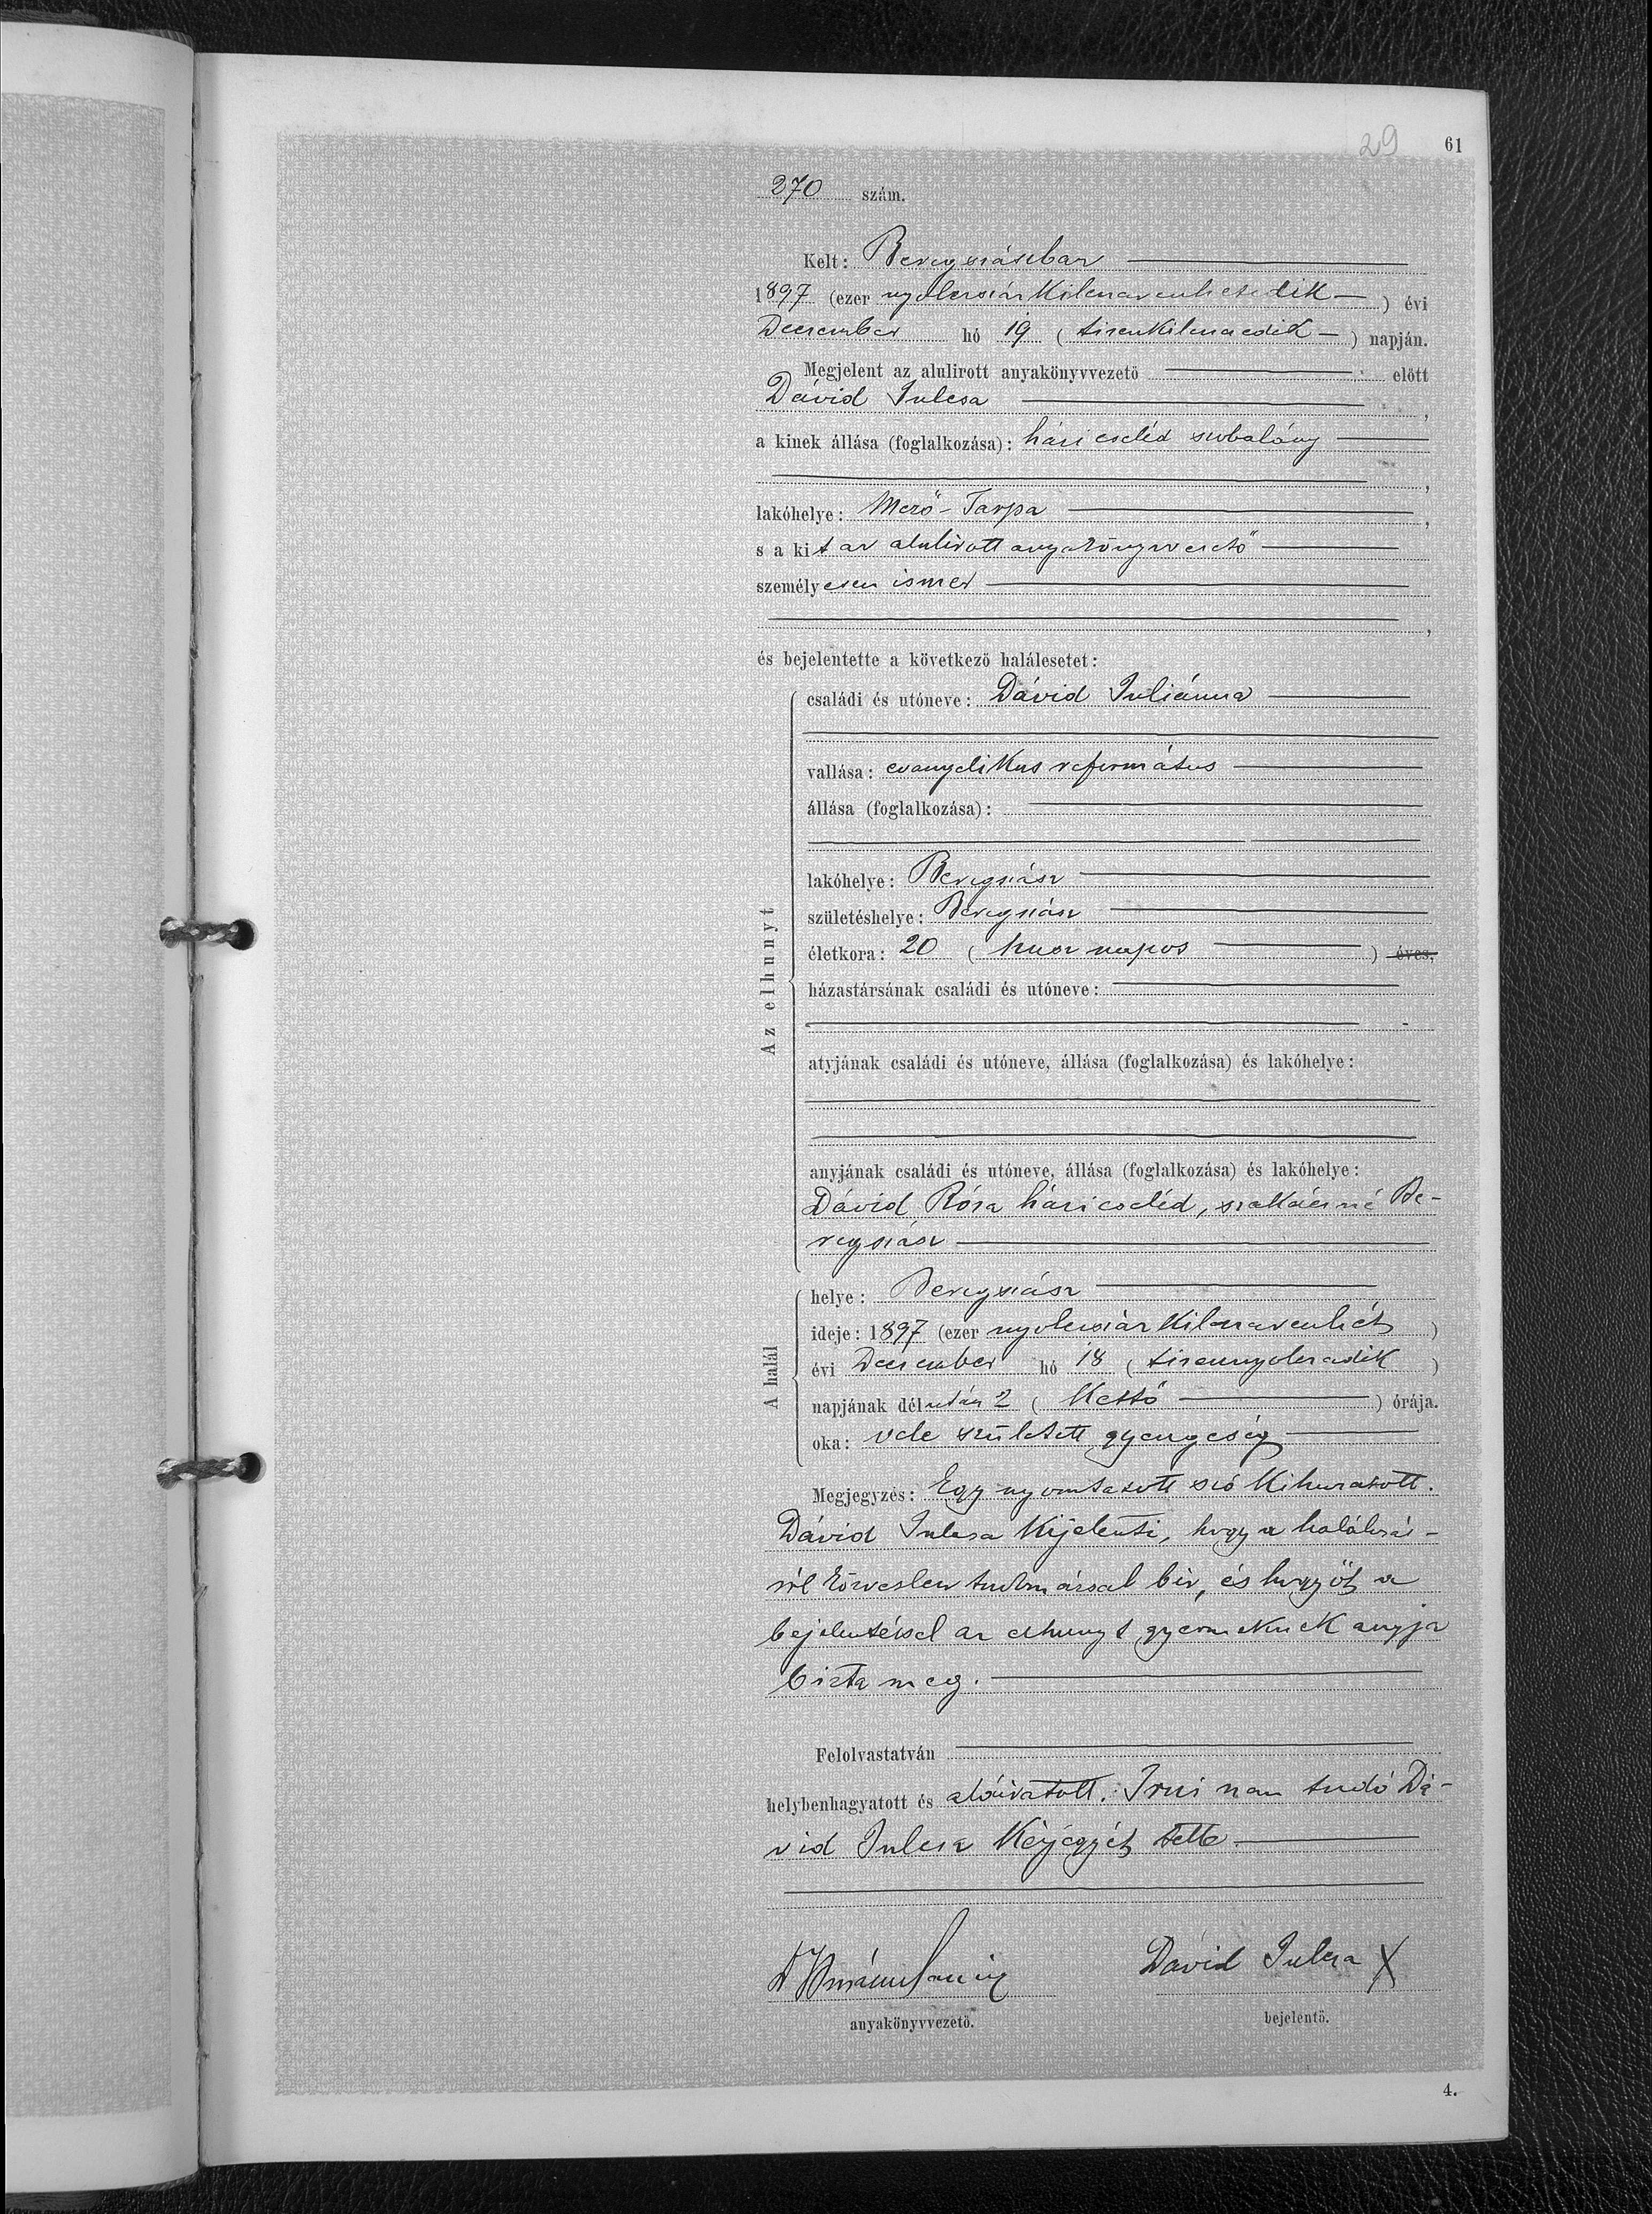 29
61
270 szám.
Kelt: Beregszászban
1897 (ezer nyolczszázkilenczvenhetedik) évi
December hó 19 (tizenkilenczedik) napján.
Megjelent az alulirott anyakönyvvezető előtt
Dávid Julcsa ,
a kinek állása (foglalkozása): házi cseléd szobalány
,
lakóhelye: Mező-Tarpa ,
s a kit az alulirott anyakönyvvezető
személyesen ismer
,
és bejelentette a következő halálesetet:
Az elhunyt
családi és utóneve: Dávid Juliánna
vallása: evangelikus református
állása (foglalkozása):
lakóhelye: Beregszász
születéshelye: Beregszász
életkora: 20 (husz napos) éves,
házastársának családi és utóneve:
atyjának családi és utóneve, állása (foglalkozása) és lakóhelye:
anyjának családi és utóneve, állása (foglalkozása) és lakóhelye:
Dávid Róza házi cseléd, szakácsné Be-
regszász
A halál
helye: Beregszász
ideje: 1897 (ezer nyolczszázkilenczvenhét)
évi December hó 18 (tizennyolczadik)
napjának délután 2 (Kettő) órája.
oka: vele született gyengeség
Megjegyzés: Egy nyomtatott szó kihuzatott.
Dávid Julcsa kijelenti, hogy a halálozás-
ról közvetlen tudomással bir, és hogy őt a
bejelentéssel az elhunyt gyermeknek anyja
bizta meg.
Felolvastatván
helybenhagyatott és aláiratott. Irni nem tudó Dá-
vid Julcsa kézjegyét tette
Dávid Julcsa X
anyakönyvvezető.
bejelentő.
4.